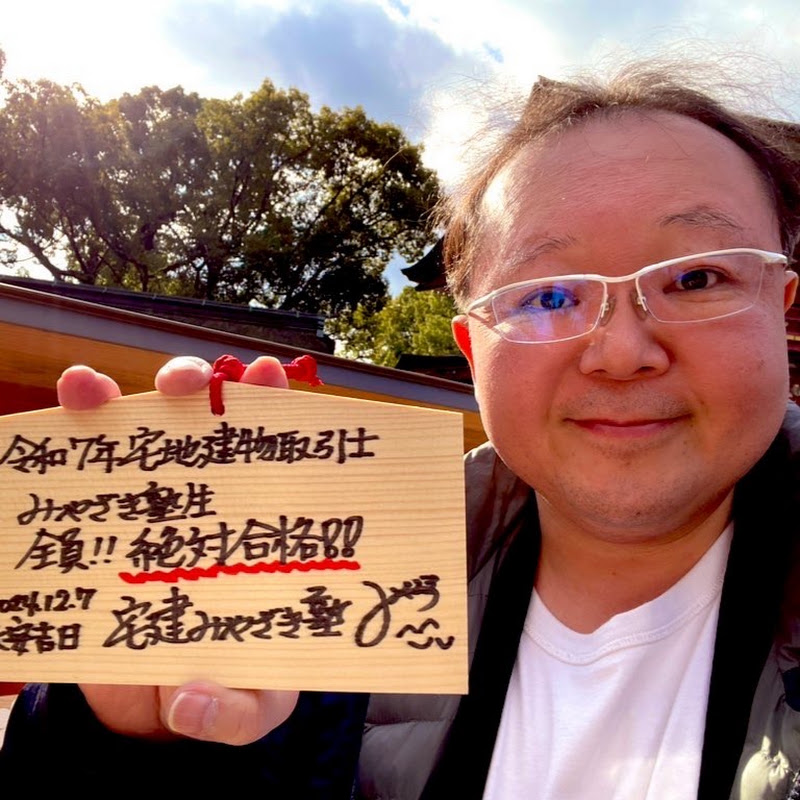 令和7年宅地建物取引士
みやざき塾生
全員!! 絶対合格!!
2024.12.7 宅建みやざき塾
大安吉日